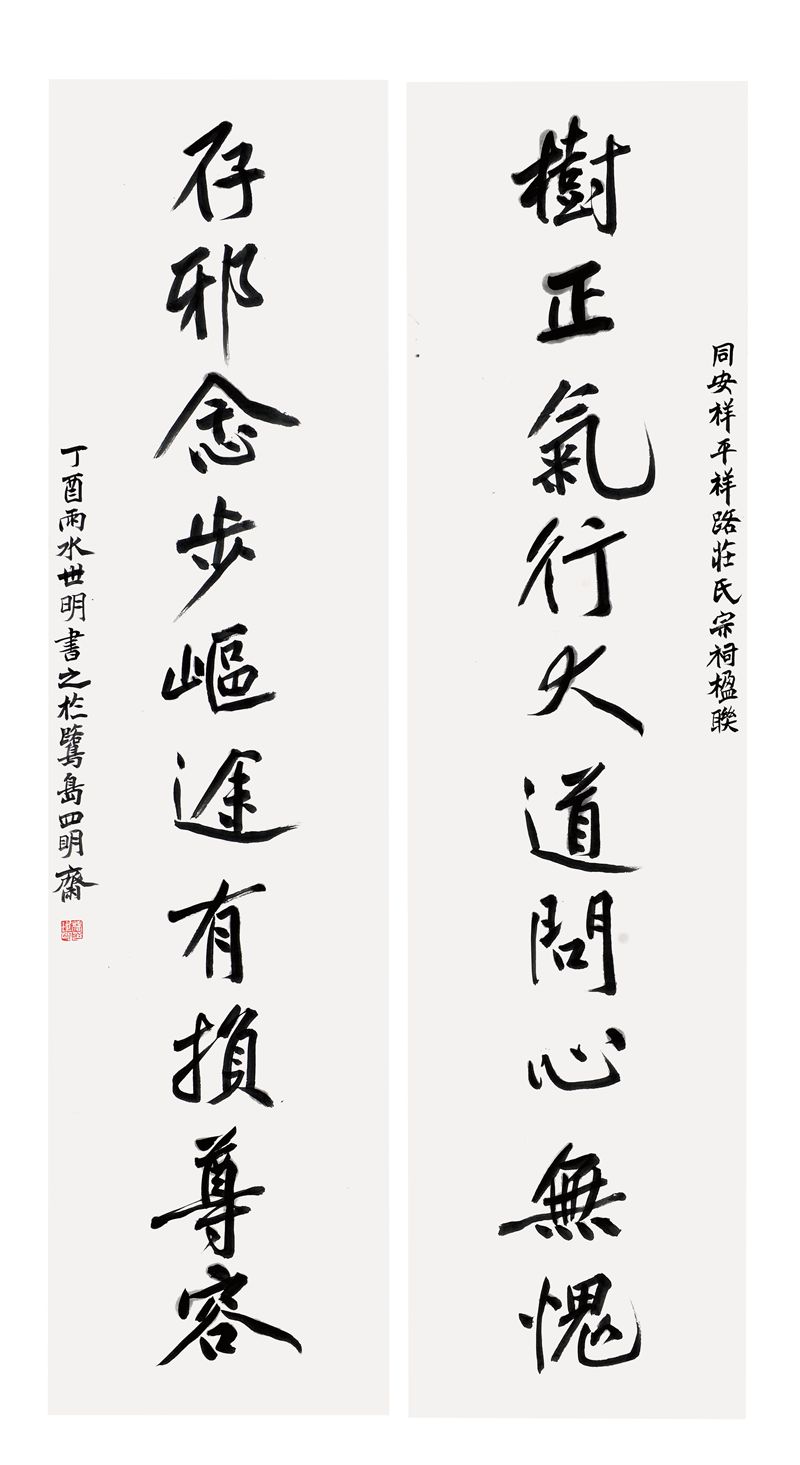 同安祥平祥路莊氏宗祠楹聯
樹正氣行大道問心無愧
存邪念步嶇途有損尊容
丁酉雨水世明書之於鷺島四明齋